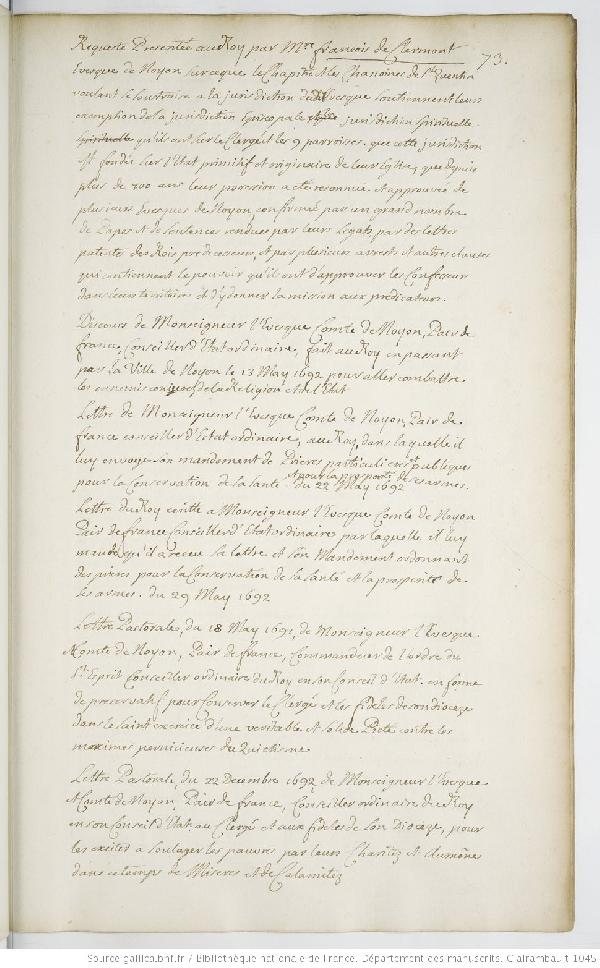 Requeste Presentée au Roy par Mre françois de Clermont
73.
Evesque de Noyon sur ce que le Chapitre et les Chanoines de St Quentin
voulant se soustraire a la jurisdiction dudit Evesque soutiennent leur
exemption de la jurisdiction Episcopale jurisdiction spirituelle
spirituelle qu'ils ont sur le Clergé et les 9 parroisses. que cette jurisdiction
est fondée sur l'Etat primitif et originaire de leur Eglise, que depuis
plus de 700 ans leur possession a été reconnue et approuvée de
plusieurs Evesques de Noyon confirmée par un grand nombre
de Papes et de sentences rendues par leurs Legats par des lettres
patentes des Rois predecesseurs, et par plusieurs arrests et autres
qui contiennent le pouvoir qu'ils ont d'approuver les Confesseurs
dans leurs territoires et d'y donner la mission aux predicateurs.
Discours de Monseigneur l'Evesque Comte de Noyon, Pair de
france, Conseiller d'Etat ordinaire, fait au Roy en passant
par la Ville de Noyon le 13 May 1692 pour aller combattre
les ennemis conjurés de la Religion et de l'Etat
Lettre de Monseigneur l'Evesque Comte de Noyon, Pair de
france conseiller d'Etat ordinaire, au Roy, dans laquelle il
luy envoye son mandement de Prieres particulieres et publiques
pour la Conservation de la santé et pour la prosperité de ses armes.
du 22 May 1692
Lettre du Roy ecritte a Monseigneur l'Evesque Comte de Noyon
Pair de france Conseiller d'Etat ordinaire par laquelle il luy
mande qu'il a receu sa lettre et son Mandement ordonnant
des prieres pour la Conservation de la santé et la prosperité de
ses armes. du 29 May 1692
Lettre Pastorale, du 18 May 1691, de Monseigneur l'Evesque
Comte de Noyon, Pair de france, Commandeur de l'ordre du
St Esprit Conseiller ordinaire du Roy en son Conseil d'Etat. en forme
de preservatif pour conserver le Clergé et les fideles de son diocèze
dans le saint exercice d'une veritable et solide Pieté contre les
maximes pernicieuses du Quietisme
Lettre Pastorale, du 22 Decembre 1692, de Monseigneur l'Evesque
Comte de Noyon, Pair de france, Conseiller ordinaire du Roy
en son Conseil d'Etat, au Clergé et aux fideles de son Diocèze, pour
les exciter a soulager les pauvres par leurs Charitez et Aumônes
dans ce temps de Miseres et de Calamitez
Source gallica.bnf.fr / Bibliothèque nationale de France. Département des manuscrits. Clairambault 1045